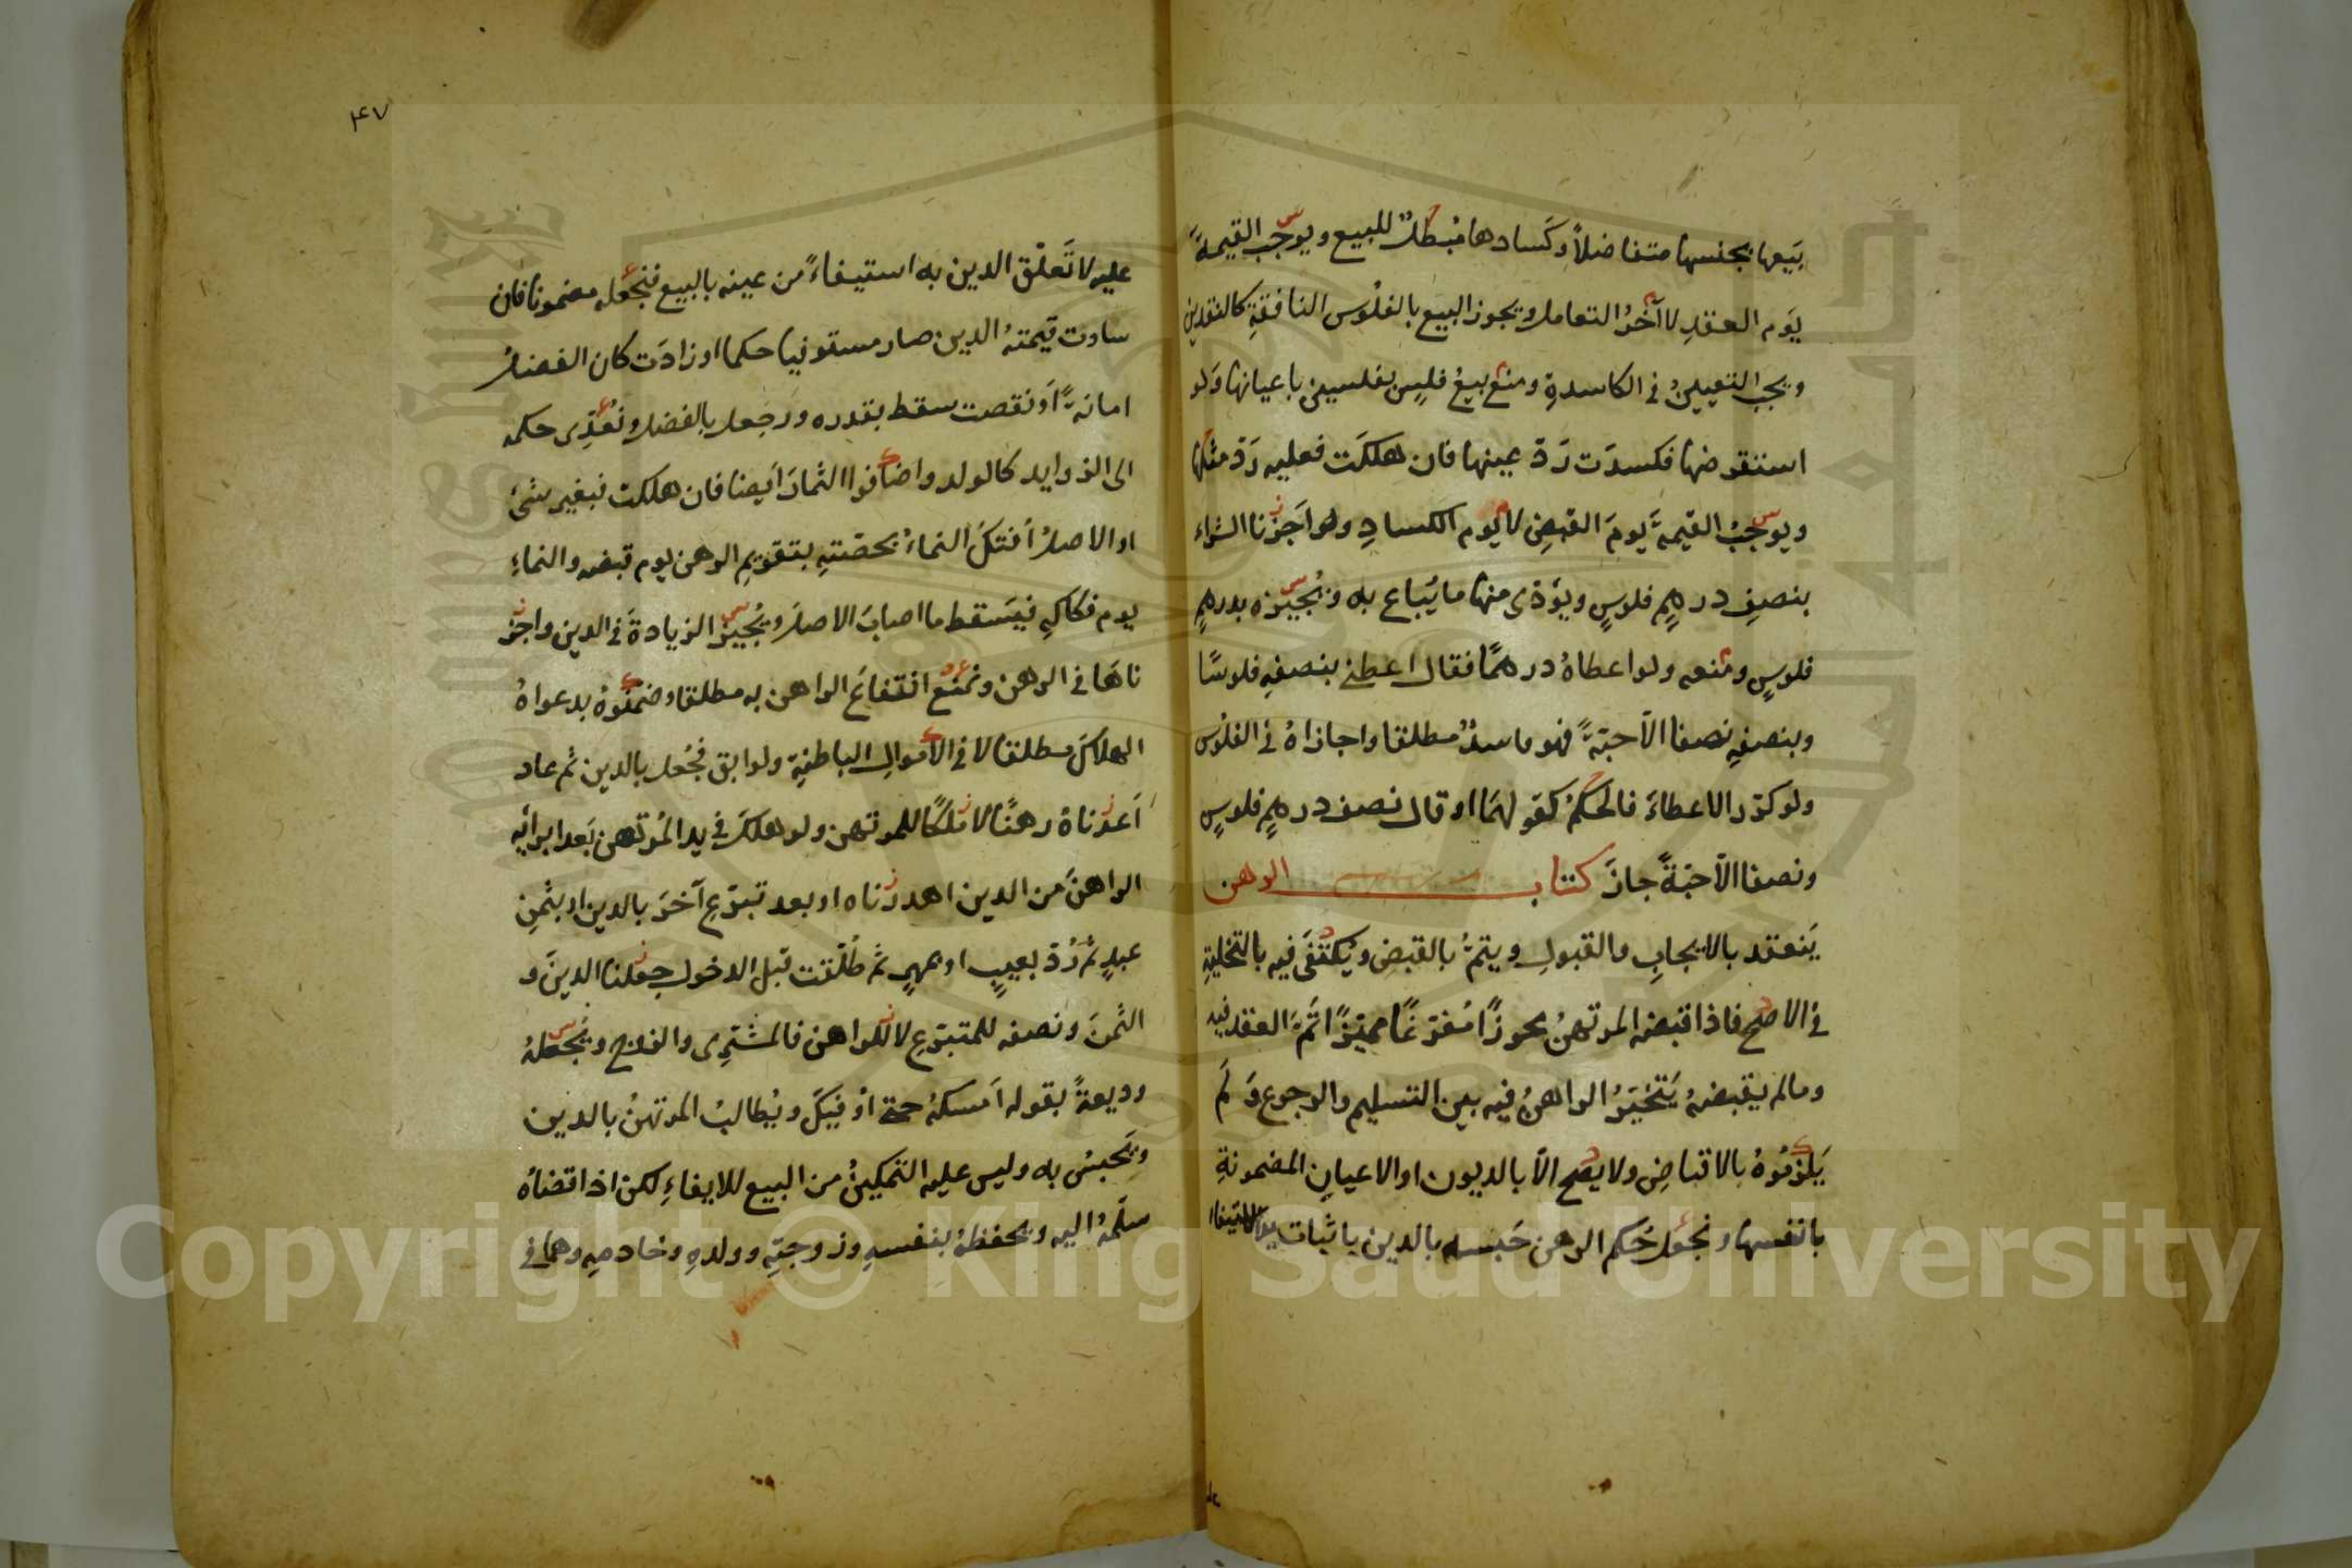 بَيعها بجنسها متفاضلاً وكَسادها مُبطلٌ للبيع ويوجب القيمةَ
يَوم العقدِ لا آخرُ التعامل ويجوز البيع بالفلُوس النافقةِ كالنقدين
ويجب التعيينُ في الكاسدةِ ومنع بيعُ فلسٍ بفلسين باعيانها ولو
استقرضها فكسدَت رَدّ عينها فان هلكَت فعليه رَدّ مثلها
ويوجبُ القيمةَ يومَ القبضِ لا يوم الكسادِ ولو اَجَزنا الشراء
بنصفِ درهمٍ فلوسٍ ويؤدى منها ما يُباع به ونُجيزه بدرهمٍ
فلوسٍ ومنعه ولو اعطاهُ درهمًا فقال اعطنى بنصفهِ فلوسًا
وبنصفهِ نصفا الاّ حبّةً فهو فاسدٌ مطلقا واجازاهُ في الفلُوس
ولو كرّر الاعطاءَ فالحكمُ كقولهمَا او قال نصف درهمٍ فلوسٍ
ونصفا الاّ حبّةً جازَ كتاب الرهن
يَنعقد بالايجابِ والقبولِ ويتمُّ بالقبضِ ويُكتَفَى فيه بالتخليةِ
في الاصح فاذا قبضه المرتهنُ محوزًا مُفرّغًا مميّزًا تَمَّ العقد فيه
ومالم يقبضهُ يَتخيّرُ الراهنُ فيه بين التسليم والرجوع وَلَم
يَلزمُوهُ بالاقباضِ ولا يصح الاّ بالديون او الاعيانِ المضمونةِ
بانفسها ونجعل حُكم الرهن حَبسه بالدين باثبات يد الاستيفاء
٤٧
عليه لا تَعلّق الدين به استيفاءً من عينه بالبيع فنجعله مضمونا فان
ساوت قيمتهُ الدين صار مستوفيا حكما او زادَت كان الفضلُ
امانةً اَو نقصت سقط بقدره ورجعل بالفضل ونُعَدّى حكمه
الى الزوايد كالولد واضافوا الثمارَ اَيضا فان هلكت فبغير شئ
او الاصلُ اُفتكَّ النماءُ بحصّتهِ بتقويمِ الرهن يوم قبضه والنماءِ
يوم فكاكِه فيَسقط ما اصابَ الاصلَ ويُجيز الزيادةَ في الدين واجز
ناهَا في الرهن ونمنعُ انتفاعَ الراهن به مطلقا وضمّنُوهُ بدعواهُ
الهلاكَ مطلقا لا في الاَموالِ الباطنةِ ولو ابق فجُعل بالدين ثم عاد
اَعدناهُ رهنًا لا مِلكًا للمرتهن ولو هلكَ في يد المُرتهن بَعد ابرائِه
الراهنَ من الدين اهدرناه او بعد تبرّع آخرَ بالدين او بثمنِ
عبدٍ ثم رُدّ بعيبٍ او بمهرٍ ثم طُلّقت قبل الدخول جعلنا الدينَ و
الثمنَ ونصفه للمتبرّعِ لا للراهن فالمشترِى والزوج ونَجعلهُ
وديعةً بقوله اَمسكهُ حتى اُوفيكَ ويُطالبُ المرتهنُ بالدين
ويَحبسُ به وليس عليه التمكينُ من البيع للايفاءِ لكن اذا قضاهُ
سلّمهُ اليه ويحفظهُ بنفسهِ وزوجتِهِ وولدهِ وخادمِهِ وهما في
Copyright © King Saud University